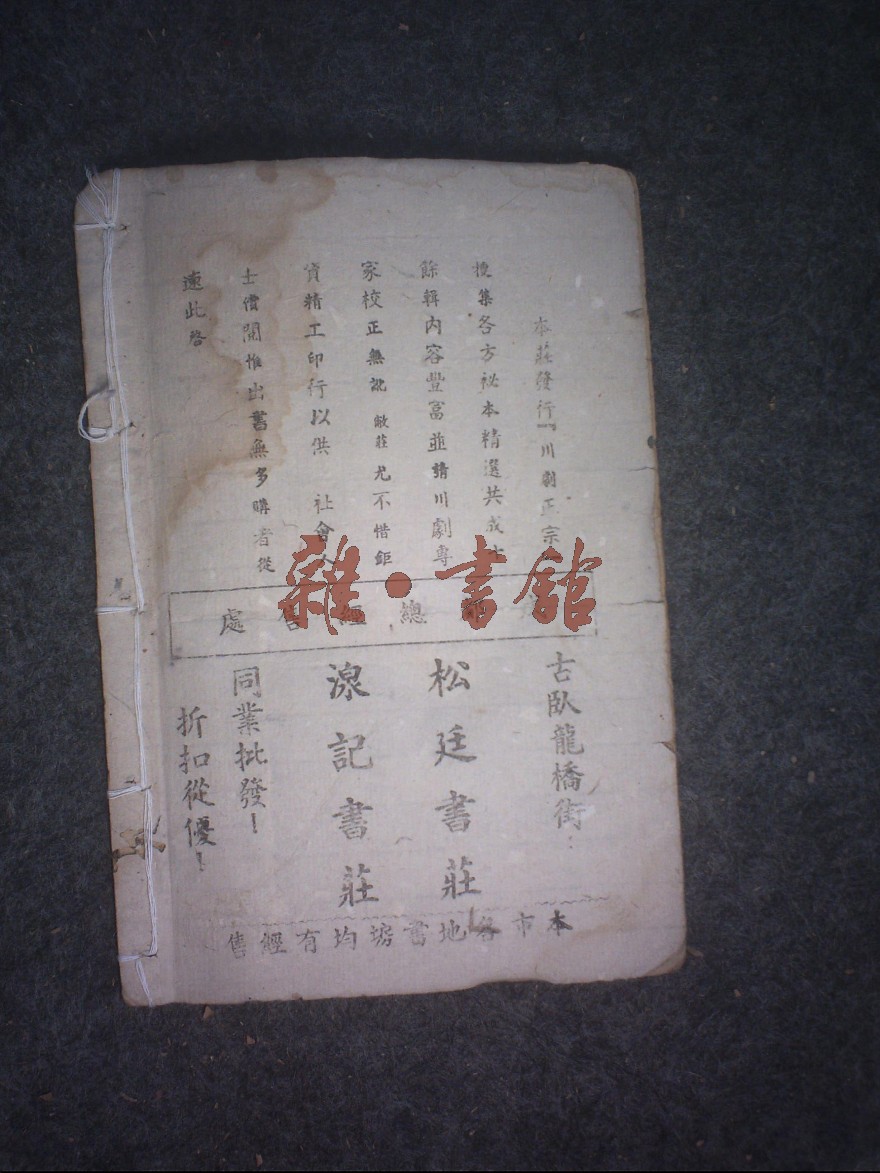 本莊發行「川劇正宗
搜集各方祕本精選共成
餘輯內容豐富並請川劇專
家校正無訛敝莊尤不惜鉅
資精工印行以供 社會人
士借閱惟出書無多購者從
速此啓
總經售處
雜·書館
古臥龍橋街：
松廷書莊
湶記書莊
同業批發！
折扣從優！
本市各地書塲均有經售